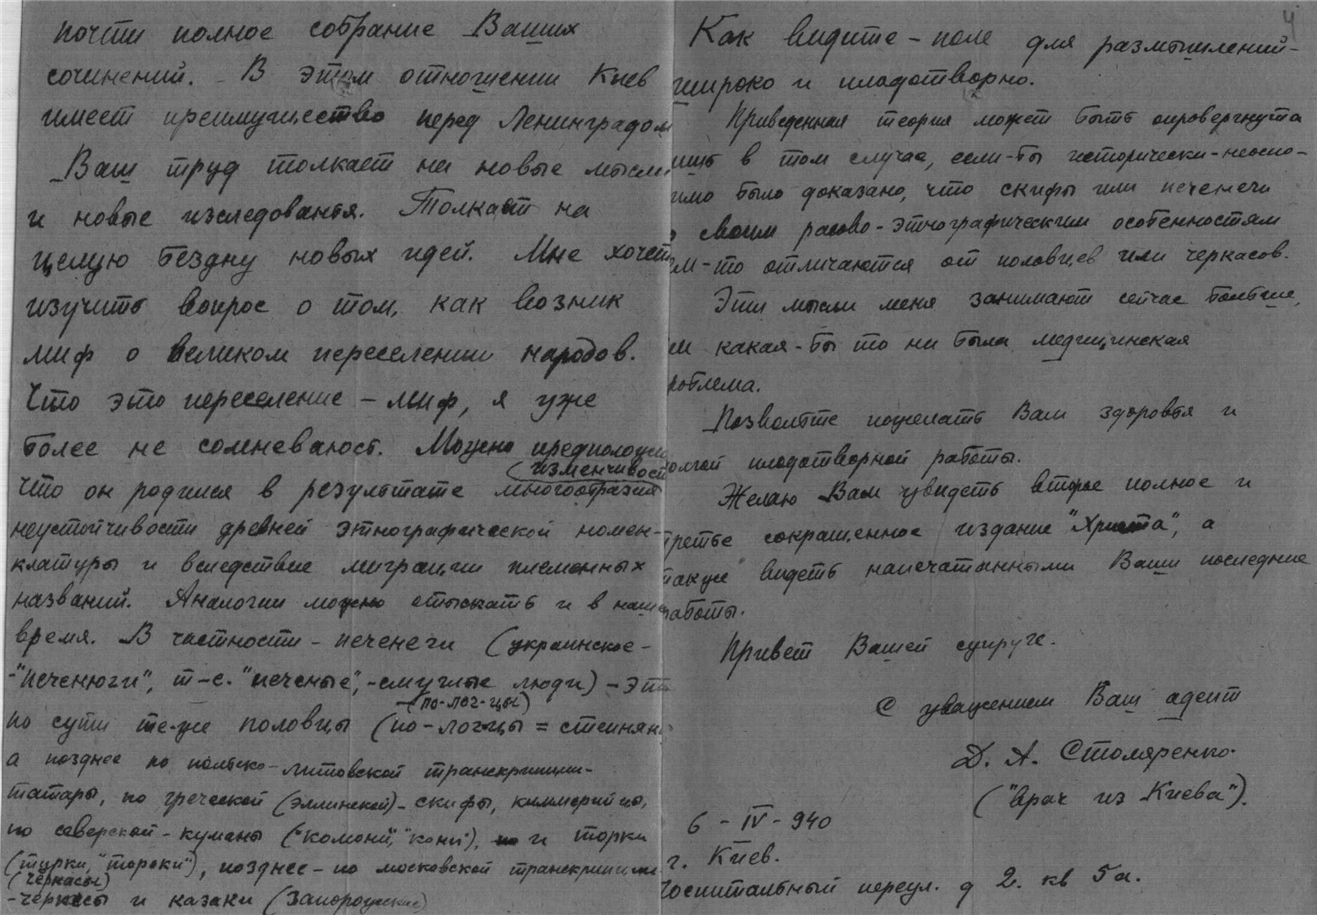 почти полное собрание Ваших
сочинений. В этом отношении Киев
имеет преимущество перед Ленинградом
Ваш труд толкает на новые мысли
и новые изследованья. Толкает на
целую бездну новых идей. Мне хочет
изучить вопрос о том, как возник
миф о великом переселении народов.
Что это переселение – миф, я уже
более не сомневаюсь. Можно предположи
(изменчивост
что он родился в результате многообразия
неустойчивости древней этнографической номен-
клатуры и вследствие миграции племенных
названий. Аналогии можно отыскать и в наше
время. В частности – печенеги (украинское –
– "печенюги", т-е. "печеные", – смуглые люди) – эт
(по-лог-цы)
по сути те-же половцы (по-лог-цы = степняки
а позднее по польско-литовской транскрипции –
татары, по греческой (эллинской) – скифы, киммерийцы,
по северской – куманы ("комони", "кони"), и торки
(турки, "тороки"), позднее – по московской транскрипции
(черкасы)
– черкесы и казаки (Запорожские)
4
Как видите – поле для размышлений –
широко и плодотворно.
Приведенная теория может быть опровергнута
ишь в том случае, если-бы исторически-неоспо-
имо было доказано, что скифы или печенеги
о своим расово-этнографическим особенностям
ем-то отличаются от половцев или черкасов.
Эти мысли меня занимают сейчас больше,
ем какая-бы то ни была медицинская
роблема.
Позвольте пожелать Вам здоровья и
олгой плодотворной работы.
Желаю Вам увидеть второе полное и
третье сокращенное издание "Христа", а
также видеть напечатанными Ваши последние
работы.
Привет Вашей супруге.
С уважением Ваш адепт
Д. А. Столяренко.
("врач из Киева").
6 – IV – 940
г. Киев.
Госпитальный переул. д 2. кв 5а.